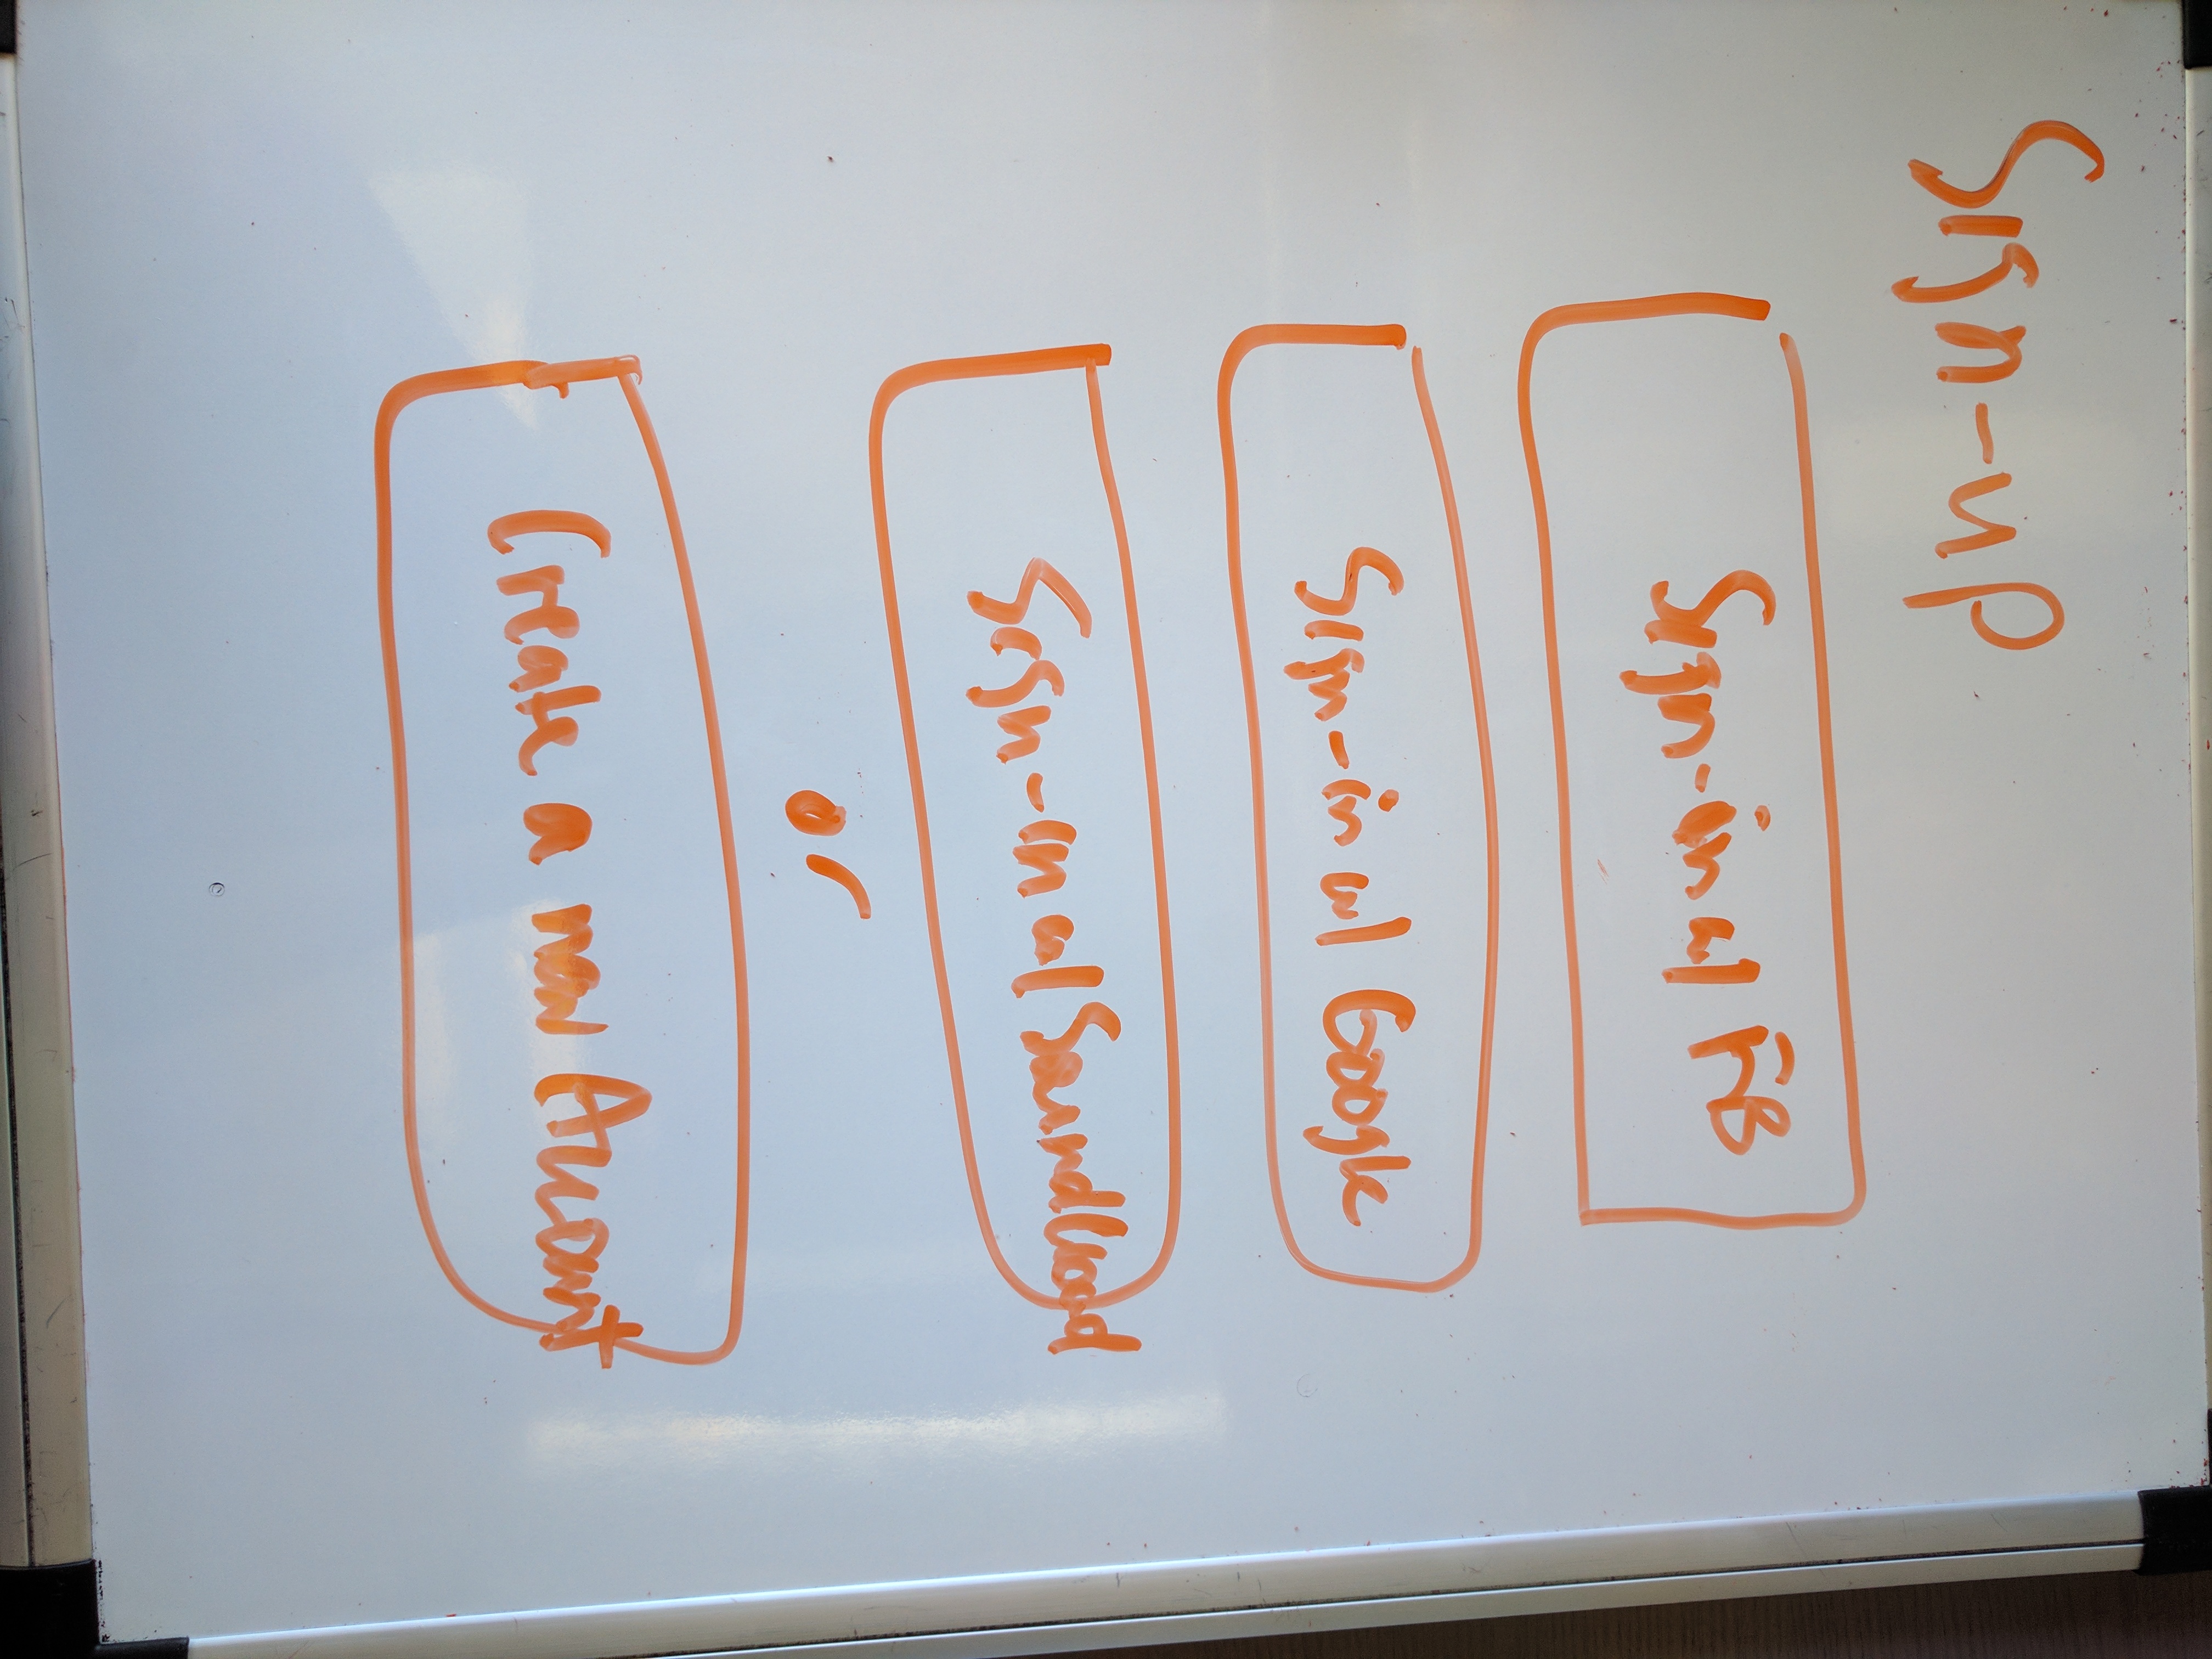 Sign-up
Sign-in w/ FB
Sign-in w/ Google
Sign-in w/ Soundcloud
or
Create a new Account